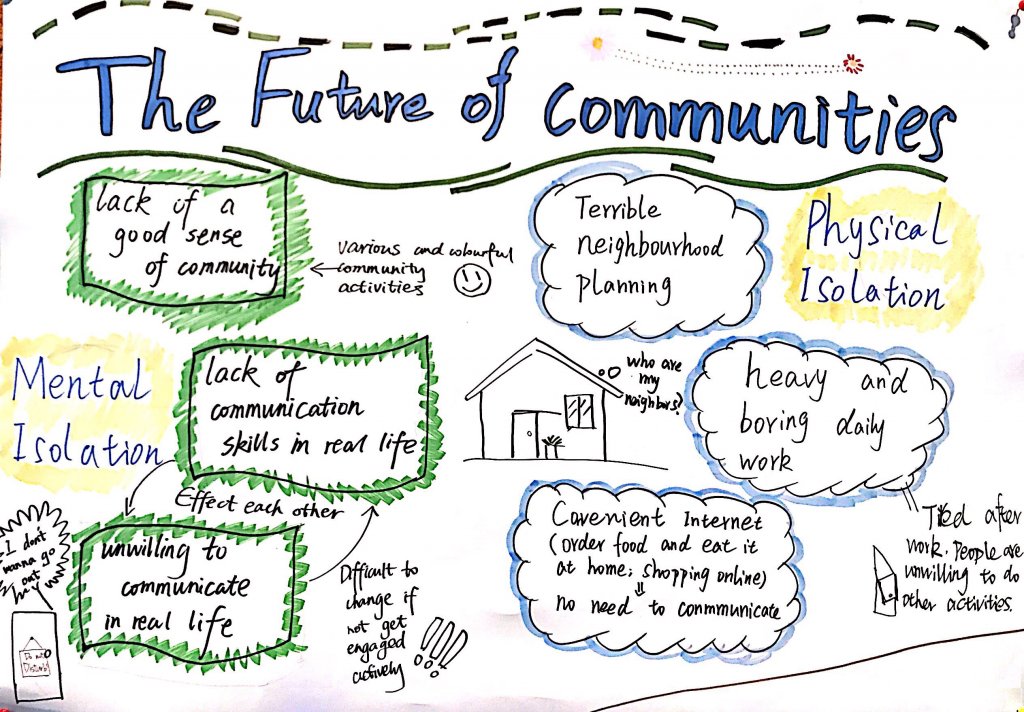 The Future of Communities
lack of a
good sense
of community
various and colourful
community
activities
Terrible
neighbourhood
planning
Physical
Isolation
Mental
Isolation
lack of
communication
skills in real life
who are
my
neighbors?
heavy and
boring daily
work
Effect each other
unwilling to
communicate
in real life
Difficult to
change if
not get
engaged
actively
!!!
Covenient Internet
(order food and eat it
at home; shopping online)
⇓
no need to conmmunicate
Tired after
work. People are
unwilling to do
other activities.
I don't
wanna go
out
Do not
Disturb!